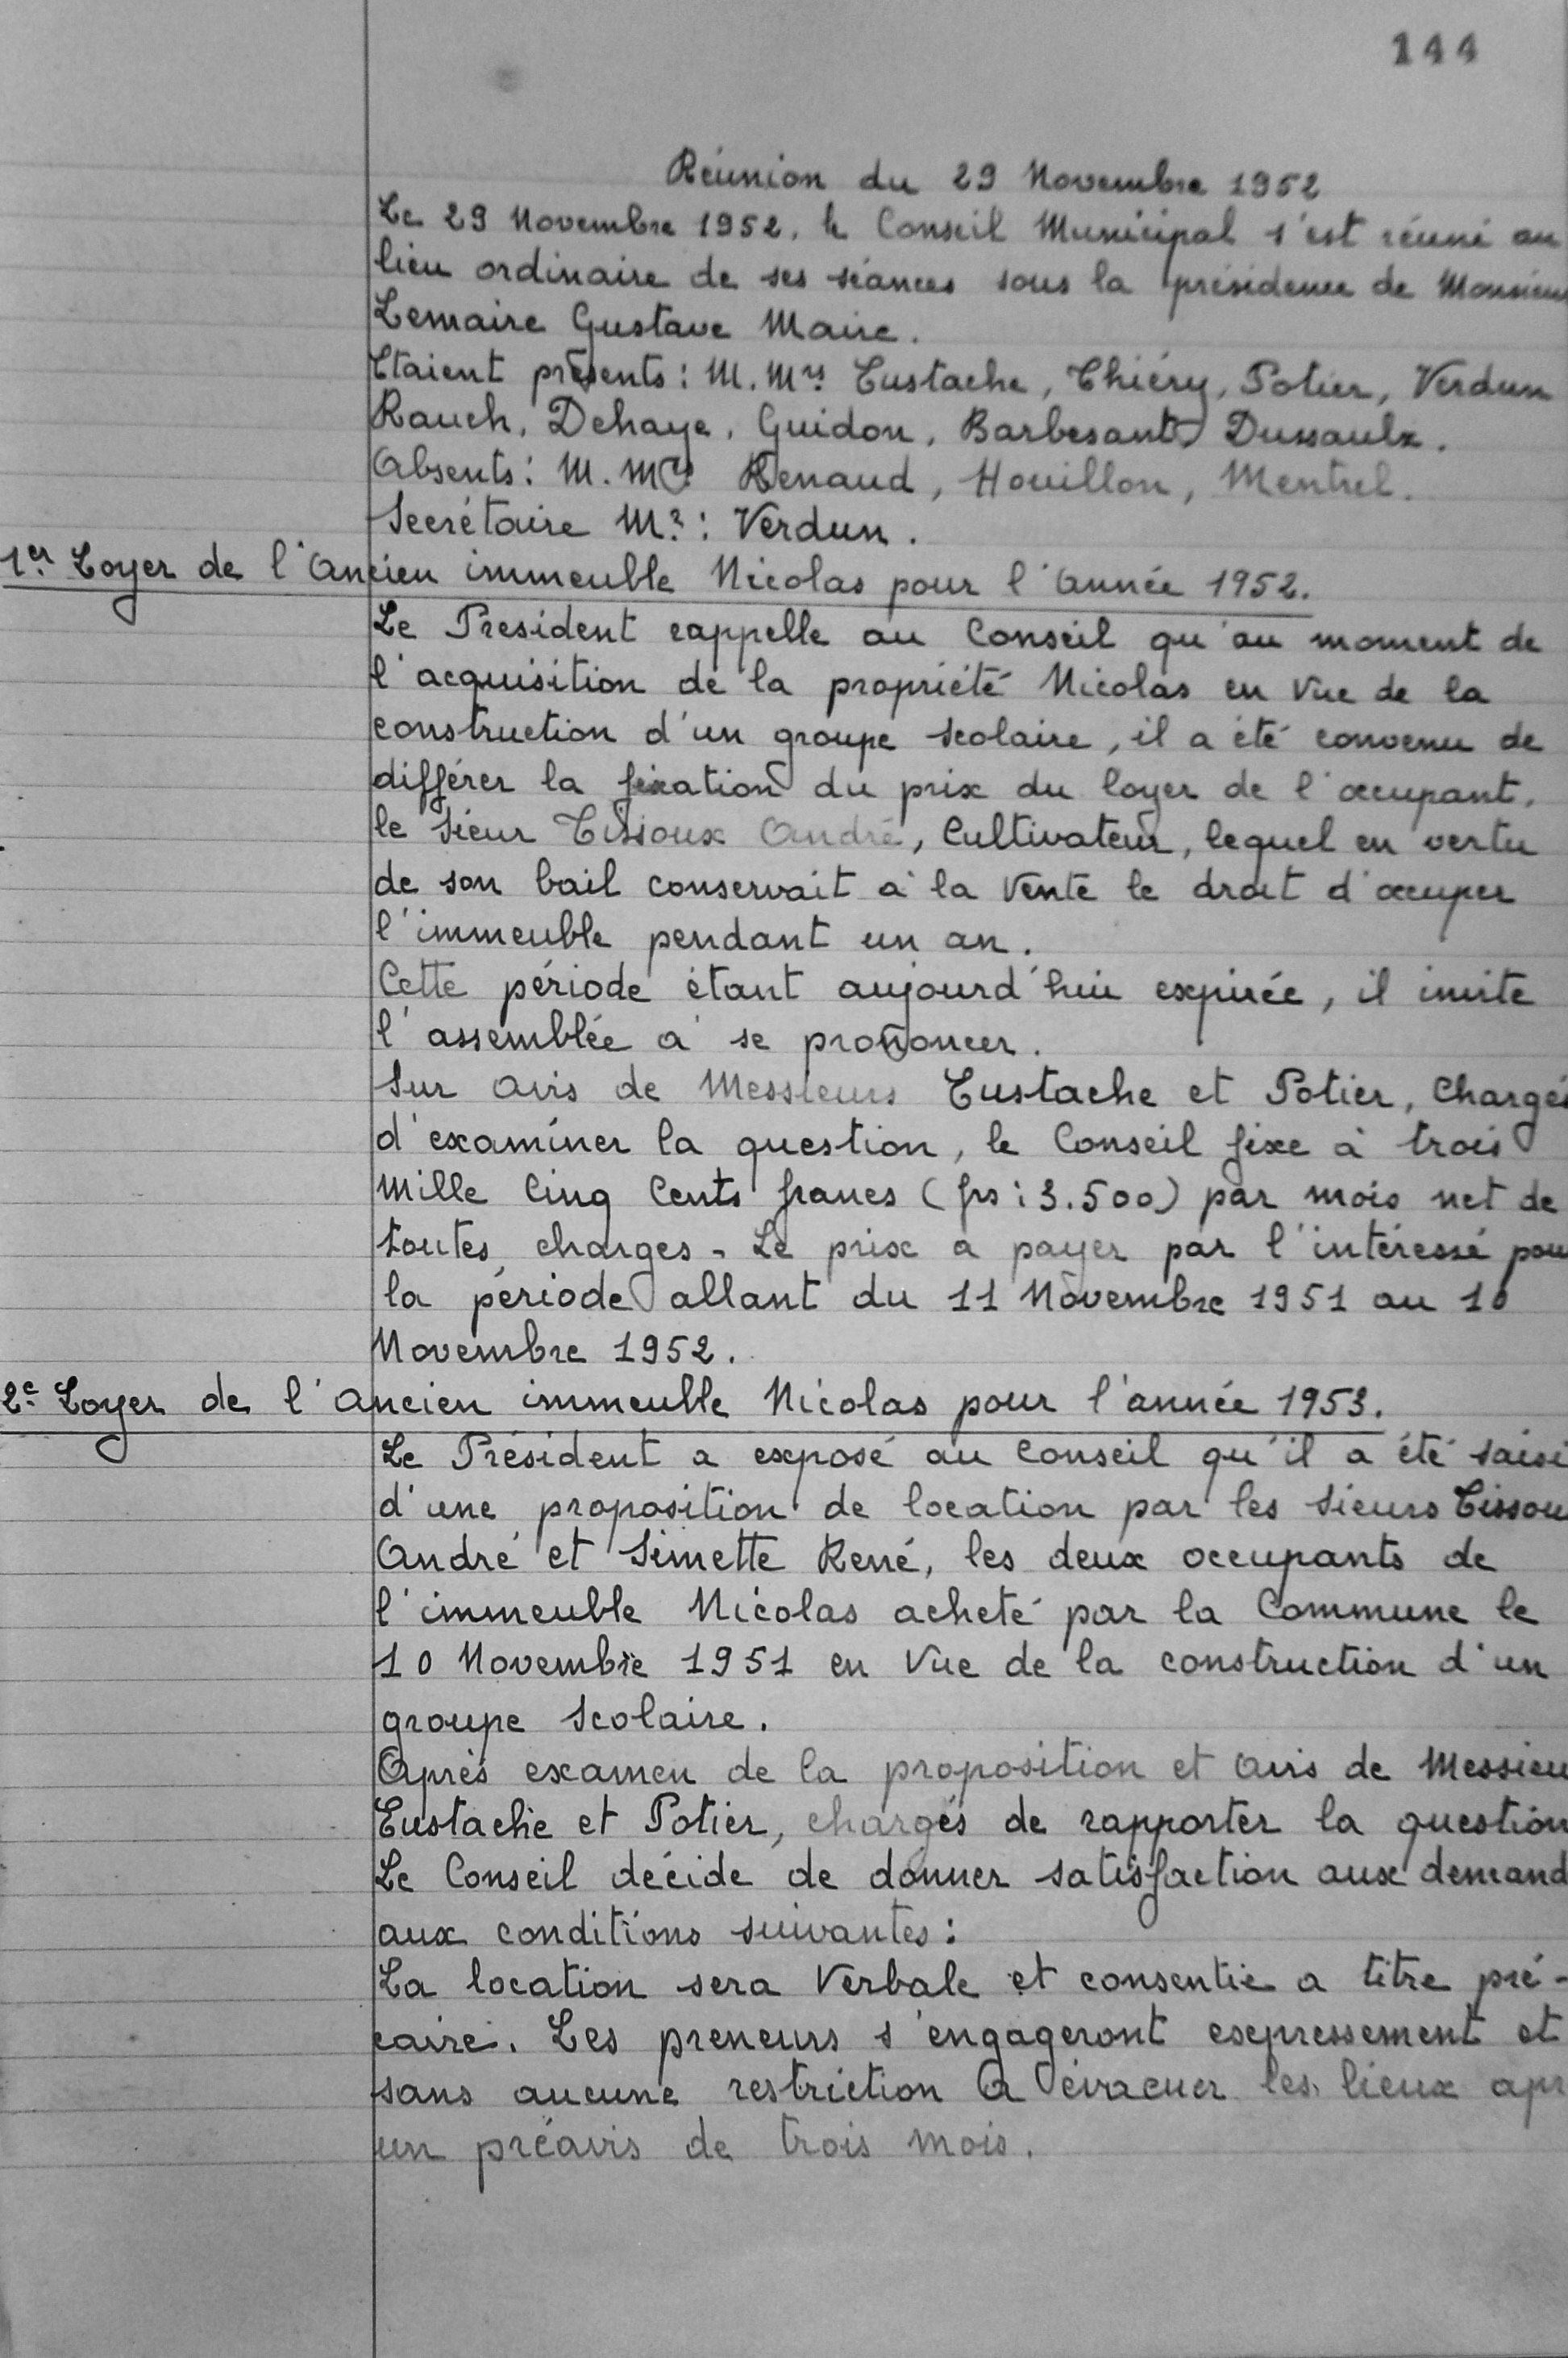 144
Réunion du 29 Novembre 1952
Le 29 Novembre 1952, le Conseil Municipal s'est réuni au
lieu ordinaire de ses séances sous la présidence de Monsieur
Lemaire Gustave Maire.
Etaient présents : M. Mrs Eustache, Thiéry, Potier, Verdun
Rauch, Dehaye, Guidon, Barbesant, Dussaulx.
Absents : M. Mrs Renaud, Houillon, Mentrel.
Secrétaire Mr : Verdun.
1er Loyer de l'Ancien immeuble Nicolas pour l'Année 1952.
Le President rappelle au Conseil qu'au moment de
l'acquisition de la propriété Nicolas en Vue de la
construction d'un groupe scolaire, il a été convenu de
différer la fixation du prix du loyer de l'occupant,
le Sieur Tissoux André, Cultivateur, lequel en vertu
de son bail conservait à la Vente le droit d'occuper
l'immeuble pendant un an.
Cette période étant aujourd'hui expirée, il invite
l'assemblée à se prononcer.
Sur Avis de Messieurs Eustache et Potier, Chargés
d'examiner la question, le Conseil fixe à trois
Mille Cinq Cents francs (frs : 3.500) par mois net de
toutes charges - Le prix a payer par l'intéressé pou
la période allant du 11 Novembre 1951 au 10
Novembre 1952.
2e Loyer de l'Ancien immeuble Nicolas pour l'année 1953.
Le Président a exposé au Conseil qu'il a été saisi
d'une proposition de location par les Sieurs Tissou
André et Simette René, les deux occupants de
l'immeuble Nicolas acheté par la Commune le
10 Novembre 1951 en Vue de la construction d'un
groupe Scolaire.
Après examen de la proposition et Avis de Messieu
Eustache et Potier, chargés de rapporter la question
Le Conseil décide de donner satisfaction aux demand
aux conditions suivantes :
La location sera Verbale et consentie a titre pré-
caire. Les preneurs s'engageront expressement et
sans aucune restriction A évacuer les lieux apr
un préavis de trois mois.